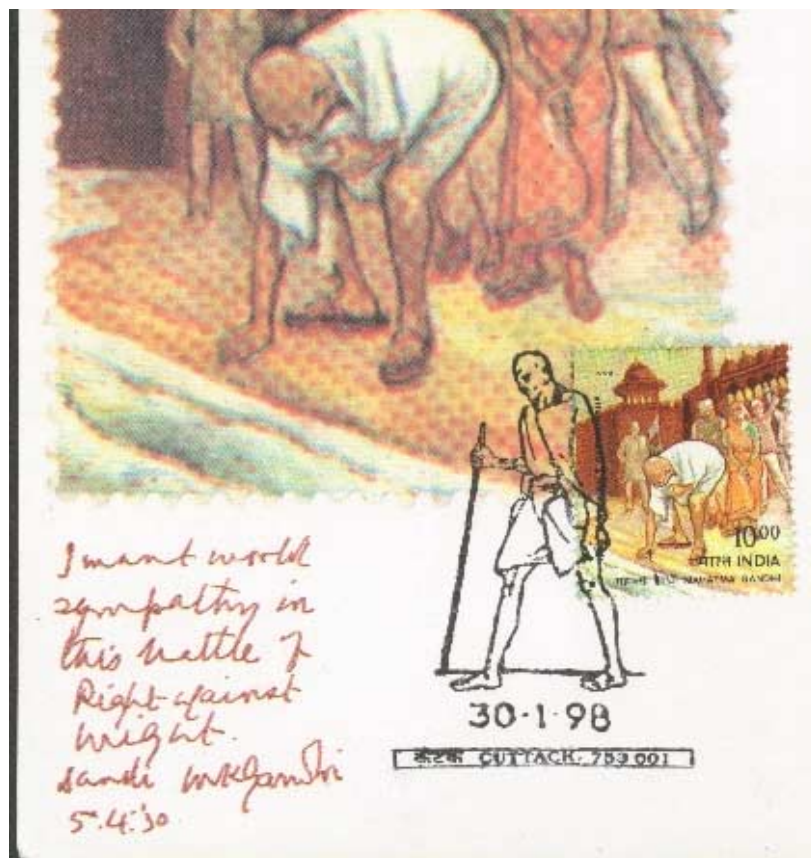 10.00
भारत INDIA
महात्मा गांधी MAHATMA GANDHI
I want world
sympathy in
this battle of
Right against
might.
Dandi MKGandhi
5.4.'30
30·1·98
कटक CUTTACK-753 001